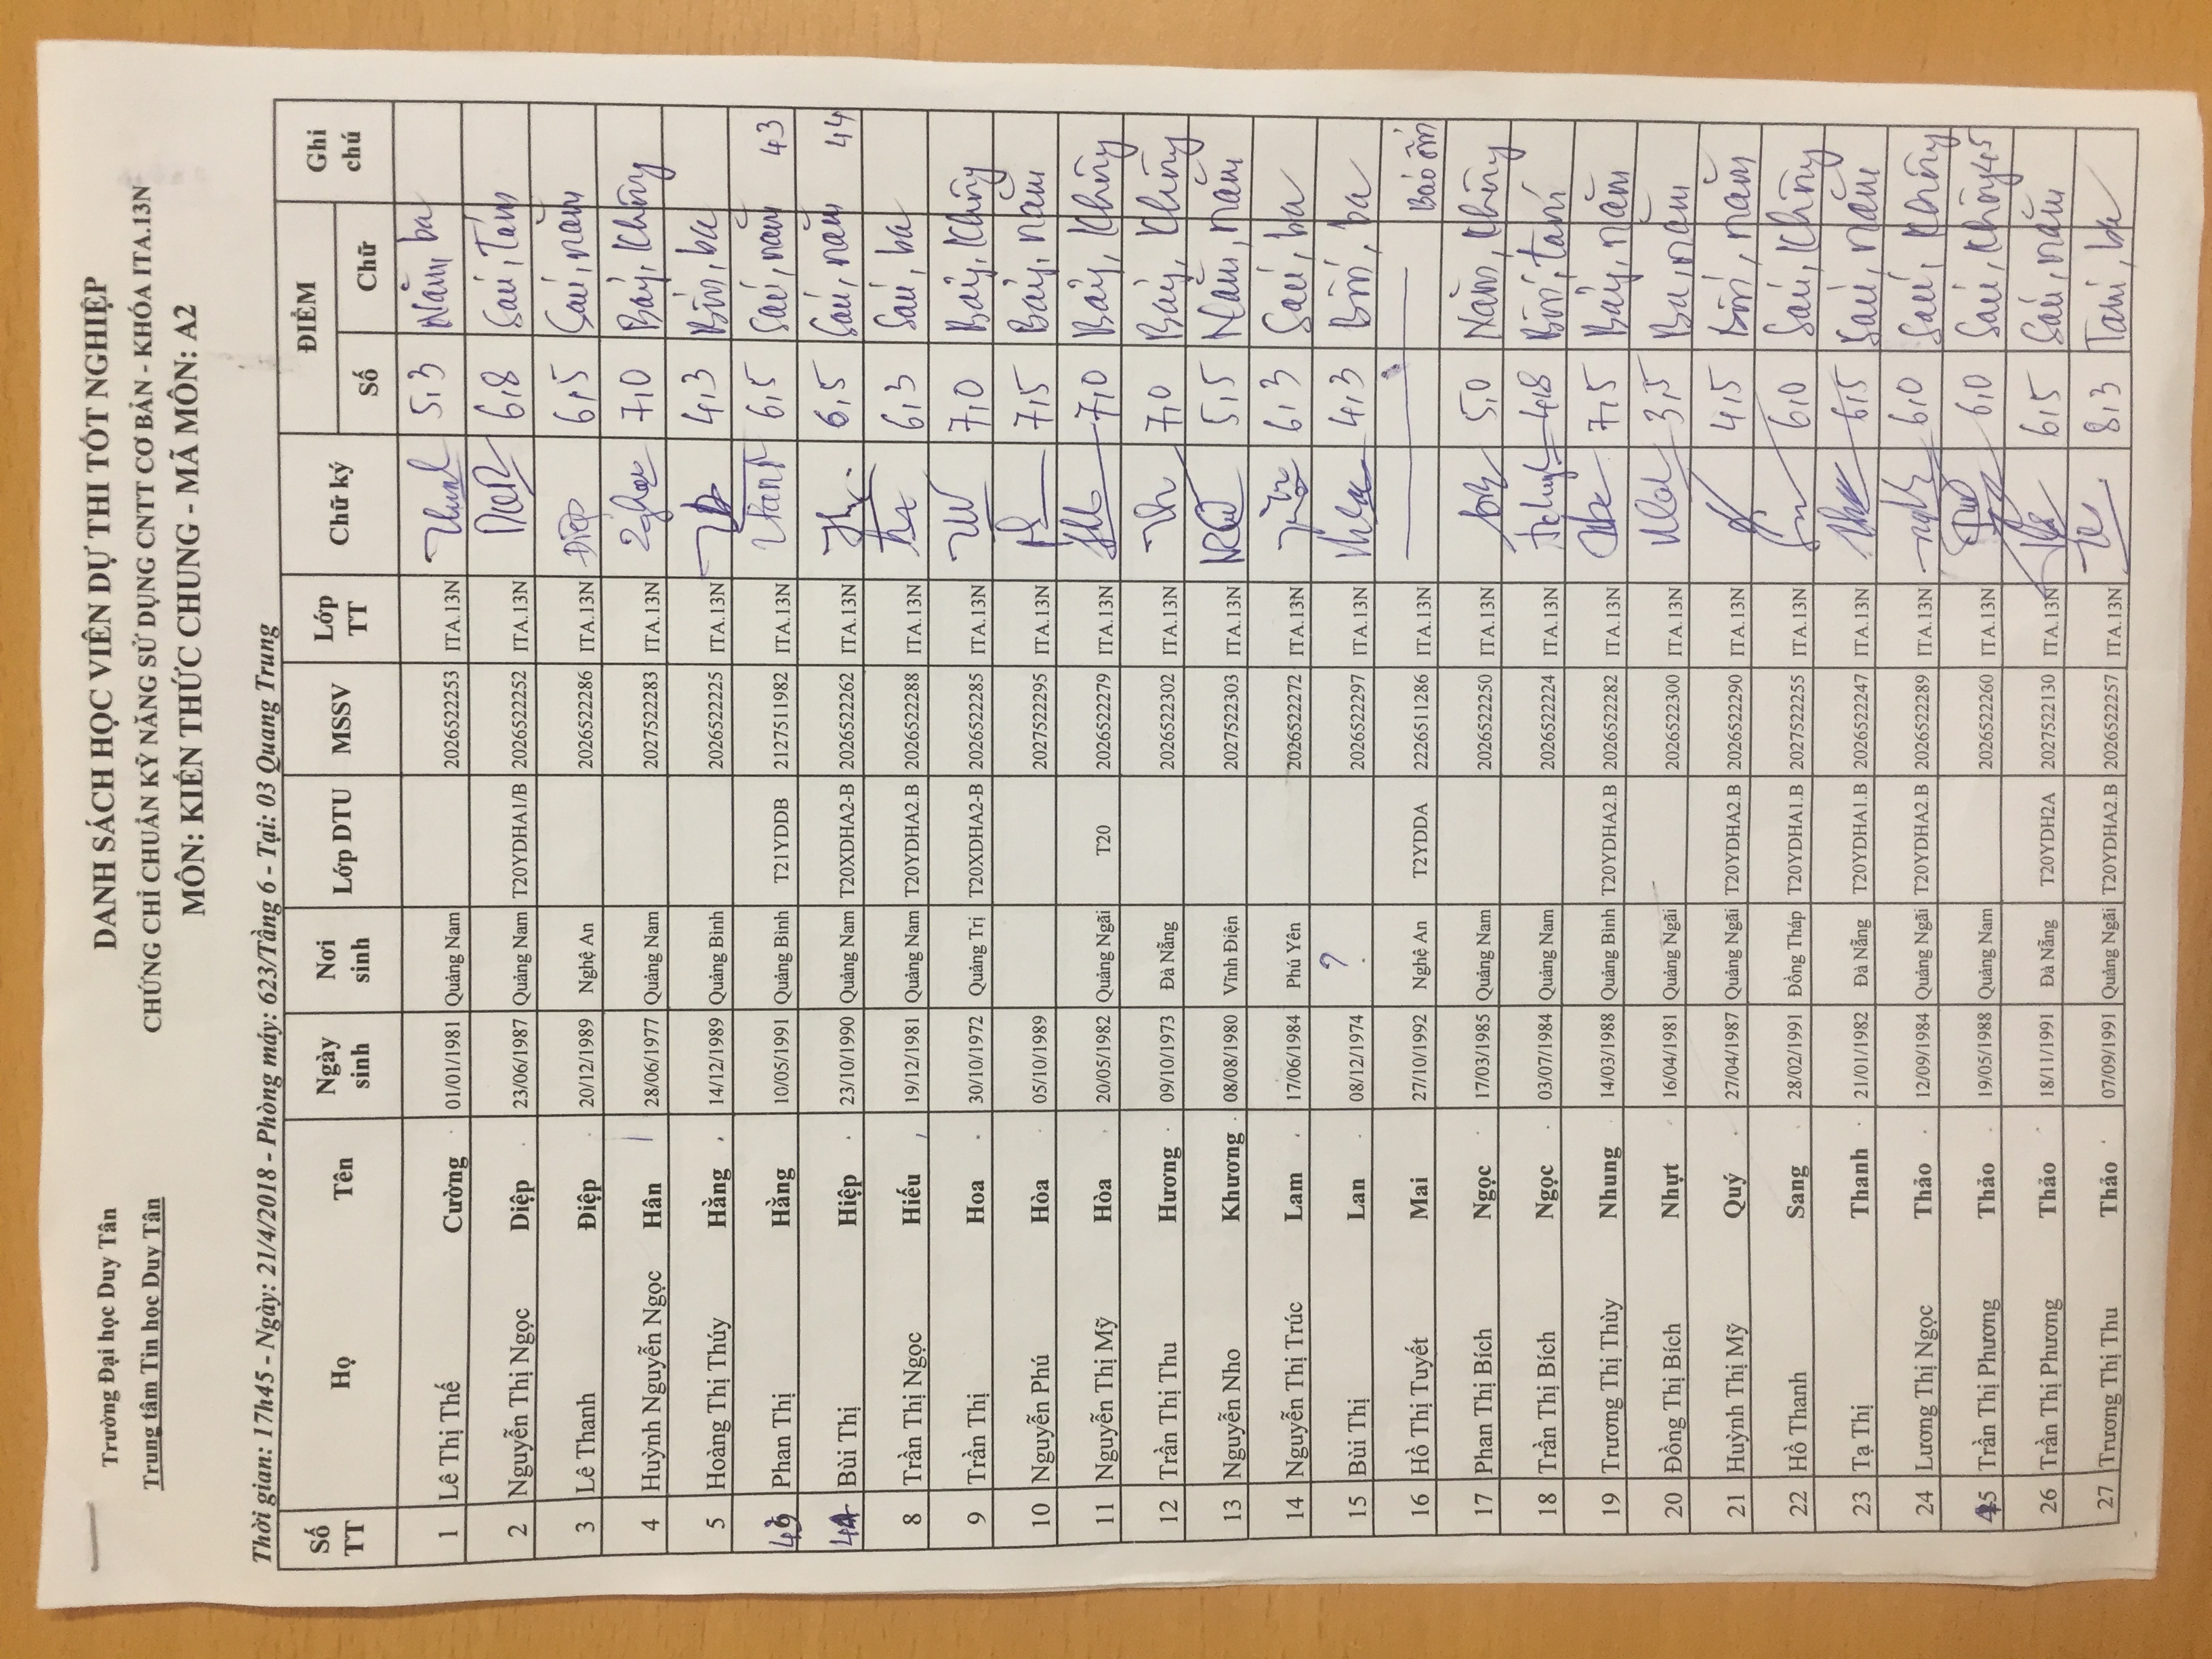 Trường Đại học Duy Tân
Trung tâm Tin học Duy Tân
DANH SÁCH HỌC VIÊN DỰ THI TỐT NGHIỆP
CHỨNG CHỈ CHUẨN KỸ NĂNG SỬ DỤNG CNTT CƠ BẢN - KHÓA ITA.13N
MÔN: KIẾN THỨC CHUNG - MÃ MÔN: A2
Thời gian: 17h45 - Ngày: 21/4/2018 - Phòng máy: 623/Tầng 6 - Tại: 03 Quang Trung
Số TT Họ Tên Ngày sinh Nơi sinh Lớp DTU MSSV Lớp TT Chữ ký ĐIỂM Số Chữ Ghi chú
1 Lê Thị Thế Cường 01/01/1981 Quảng Nam 2026522253 ITA.13N 5,3 Năm, ba
2 Nguyễn Thị Ngọc Diệp 23/06/1987 Quảng Nam T20YDHA1/B 2026522252 ITA.13N 6,8 Sáu, Tám
3 Lê Thanh Điệp 20/12/1989 Nghệ An 2026522286 ITA.13N Điệp 6,5 Sáu, năm
4 Huỳnh Nguyễn Ngọc Hân 28/06/1977 Quảng Nam 2027522283 ITA.13N 7,0 Bảy, không
5 Hoàng Thị Thúy Hằng 14/12/1989 Quảng Bình 2026522225 ITA.13N 4,3 Bốn, ba
43 Phan Thị Hàng 10/05/1991 Quảng Bình T21YDDB 2127511982 ITA.13N 6,5 Sáu, năm 43
44 Bùi Thị Hiệp 23/10/1990 Quảng Nam T20XDHA2-B 2026522262 ITA.13N 6,5 Sáu, năm 44
8 Trần Thị Ngọc Hiếu 19/12/1981 Quảng Nam T20YDHA2.B 2026522288 ITA.13N 6,3 Sáu, ba
9 Trần Thị Hoa 30/10/1972 Quảng Trị T20XDHA2-B 2026522285 ITA.13N 7,0 Bảy, không
10 Nguyễn Phú Hòa 05/10/1989 2027522295 ITA.13N 7,5 Bảy, năm
11 Nguyễn Thị Mỹ Hòa 20/05/1982 Quảng Ngãi T20 2026522279 ITA.13N 7,0 Bảy, không
12 Trần Thị Thu Hương 09/10/1973 Đà Nẵng 2026522302 ITA.13N 7,0 Bảy, không
13 Nguyễn Nho Khương 08/08/1980 Vĩnh Điện 2027522303 ITA.13N 5,5 Năm, năm
14 Nguyễn Thị Trúc Lam 17/06/1984 Phú Yên 2026522272 ITA.13N 6,3 Sáu, ba
15 Bùi Thị Lan 08/12/1974 ? 2026522297 ITA.13N 4,3 Bốn, ba
16 Hồ Thị Tuyết Mai 27/10/1992 Nghệ An T2YDDA 2226511286 ITA.13N Báo ốm
17 Phan Thị Bích Ngọc 17/03/1985 Quảng Nam 2026522250 ITA.13N 5,0 Năm, không
18 Trần Thị Bích Ngọc 03/07/1984 Quảng Nam 2026522224 ITA.13N 4,8 Bốn, tám
19 Trương Thị Thùy Nhung 14/03/1988 Quảng Bình T20YDHA2.B 2026522282 ITA.13N 7,5 Bảy, năm
20 Đồng Thị Bích Nhựt 16/04/1981 Quảng Ngãi 2026522300 ITA.13N 3,5 Ba, năm
21 Huỳnh Thị Mỹ Quý 27/04/1987 Quảng Ngãi T20YDHA2.B 2026522290 ITA.13N 4,5 Bốn, năm
22 Hồ Thanh Sang 28/02/1991 Đồng Tháp T20YDHA1.B 2027522255 ITA.13N 6,0 Sáu, không
23 Tạ Thị Thanh 21/01/1982 Đà Nẵng T20YDHA1.B 2026522247 ITA.13N 6,5 Sáu, năm
24 Lương Thị Ngọc Thảo 12/09/1984 Quảng Ngãi T20YDHA2.B 2026522289 ITA.13N 6,0 Sáu, không
45 Trần Thị Phương Thảo 19/05/1988 Quảng Nam 2026522260 ITA.13N 6,0 Sáu, không 45
26 Trần Thị Phương Thảo 18/11/1991 Đà Nẵng T20YDH2A 2027522130 ITA.13N 6,5 Sáu, năm
27 Trương Thị Thu Thảo 07/09/1991 Quảng Ngãi T20YDHA2.B 2026522257 ITA.13N 8,3 Tám, ba